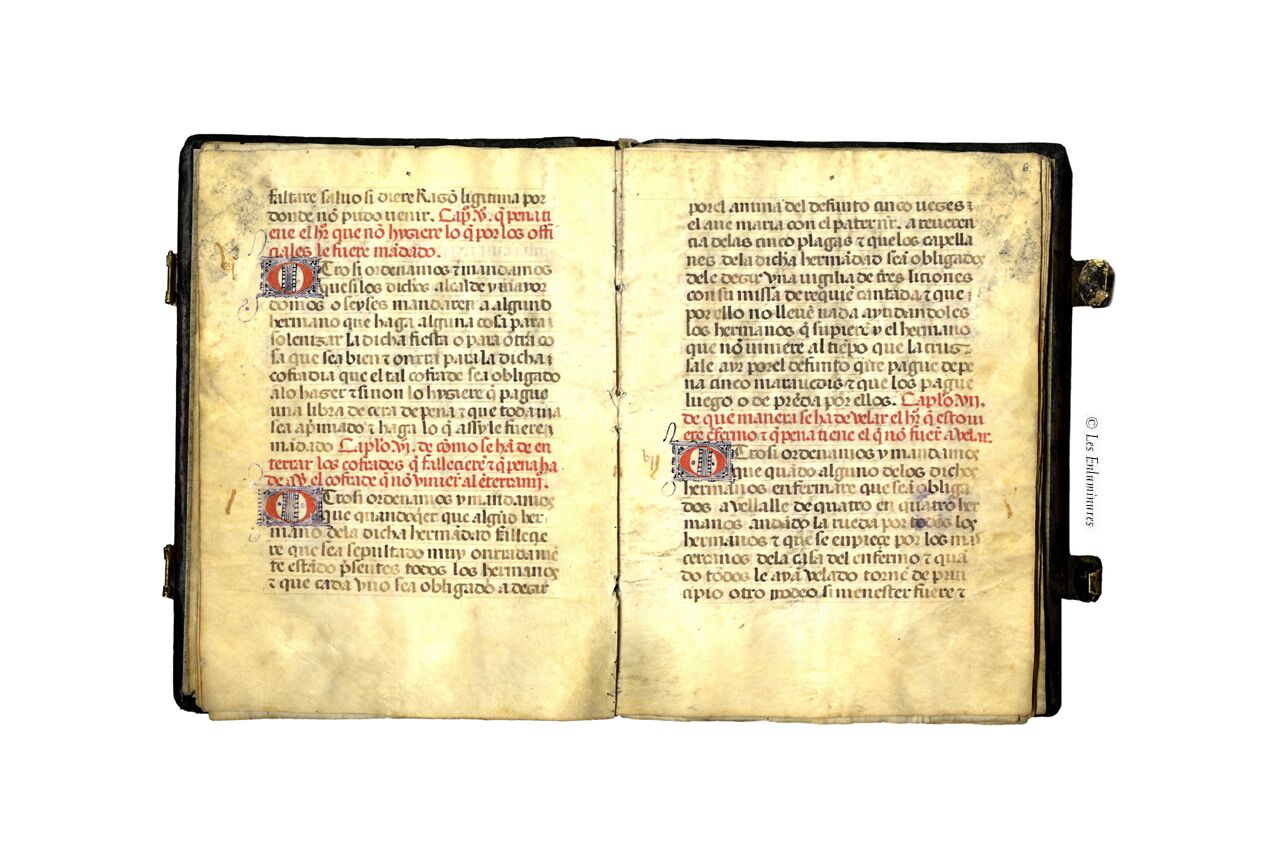 faltare saluo si diere Razõ ligitima por
donde nõ pudo uenir. Cap̃. V. q̃ pena ti
ene el hr̃ que nõ hyziere lo q̃ por los offi
ciales le fuere mãdado.
Otrosi ordenamos ⁊ mandamos
que si los dichos alcalde y mayor
domos o seyses mandaren a algund
hermano que haga alguna cosa para
solenizar la dicha fiesta o para otra co
sa que sea bien ⁊ onrra para la dicha
cofradia que el tal cofrade sea obligado
a lo hazer ⁊ si non lo hyziere q̃ pague
una libra de cera de pena ⁊ que todauia
sea ap̃miado ⁊ haga lo q̃ assy le fuere
mãdado Cap̃lo. vj. de cõmo se hã de en
terrar los cofrades q̃ fallecierẽ ⁊ q̃ pena ha
de aṽ el cofrade q̃ nõ vinier al ẽterramị̃.
Otrosi ordenamos y mandamos
que quandoq̃er que algũo her
mano dela dicha hermãdad fallecie
re que sea sepultado muy onrradamẽ
te estãdo p̃sentes todos los hermanos
⁊ que cada vno sea obligado a dezir
6
por el anima del defunto cinco vezes
el aue maria con el pater nr̃. a reueren
cia delas cinco plagas ⁊ que los capella
nes dela dicha hermãdad seã obligados
dele dezir vna vigilia de tres liciones
con su missa de requiẽ cantada ⁊ que
por ello no lleuẽ nada ayudandoles
los hermanos q̃ supierẽ y el hermano
que nõ uiniere al tiẽpo que la cruz
sale a yr por el defunto que pague de pe
na cinco marauedis ⁊ que los pague
luego o de prẽda por ellos. Cap̃lo. vij.
de que manera se ha de velar el hr̃ q̃ estoui
ere ẽfermo ⁊ q̃ pena tiene el q̃ nõ fuer̃ a velar.
Otrosi ordenamos y mandamos
que quãdo alguno delos dichos
hermanos enfermare que seã obliga
dos a velalle de quatro en quatro her
manos andãdo la rueda por todos los
hermanos ⁊ que se enpieçe por los mas
cercanos dela casa del enfermo ⁊ quã
do tõdos le ayã velado tornẽ de prin
cipio otro rrodeo si menester fuere ⁊
© Les Enluminures